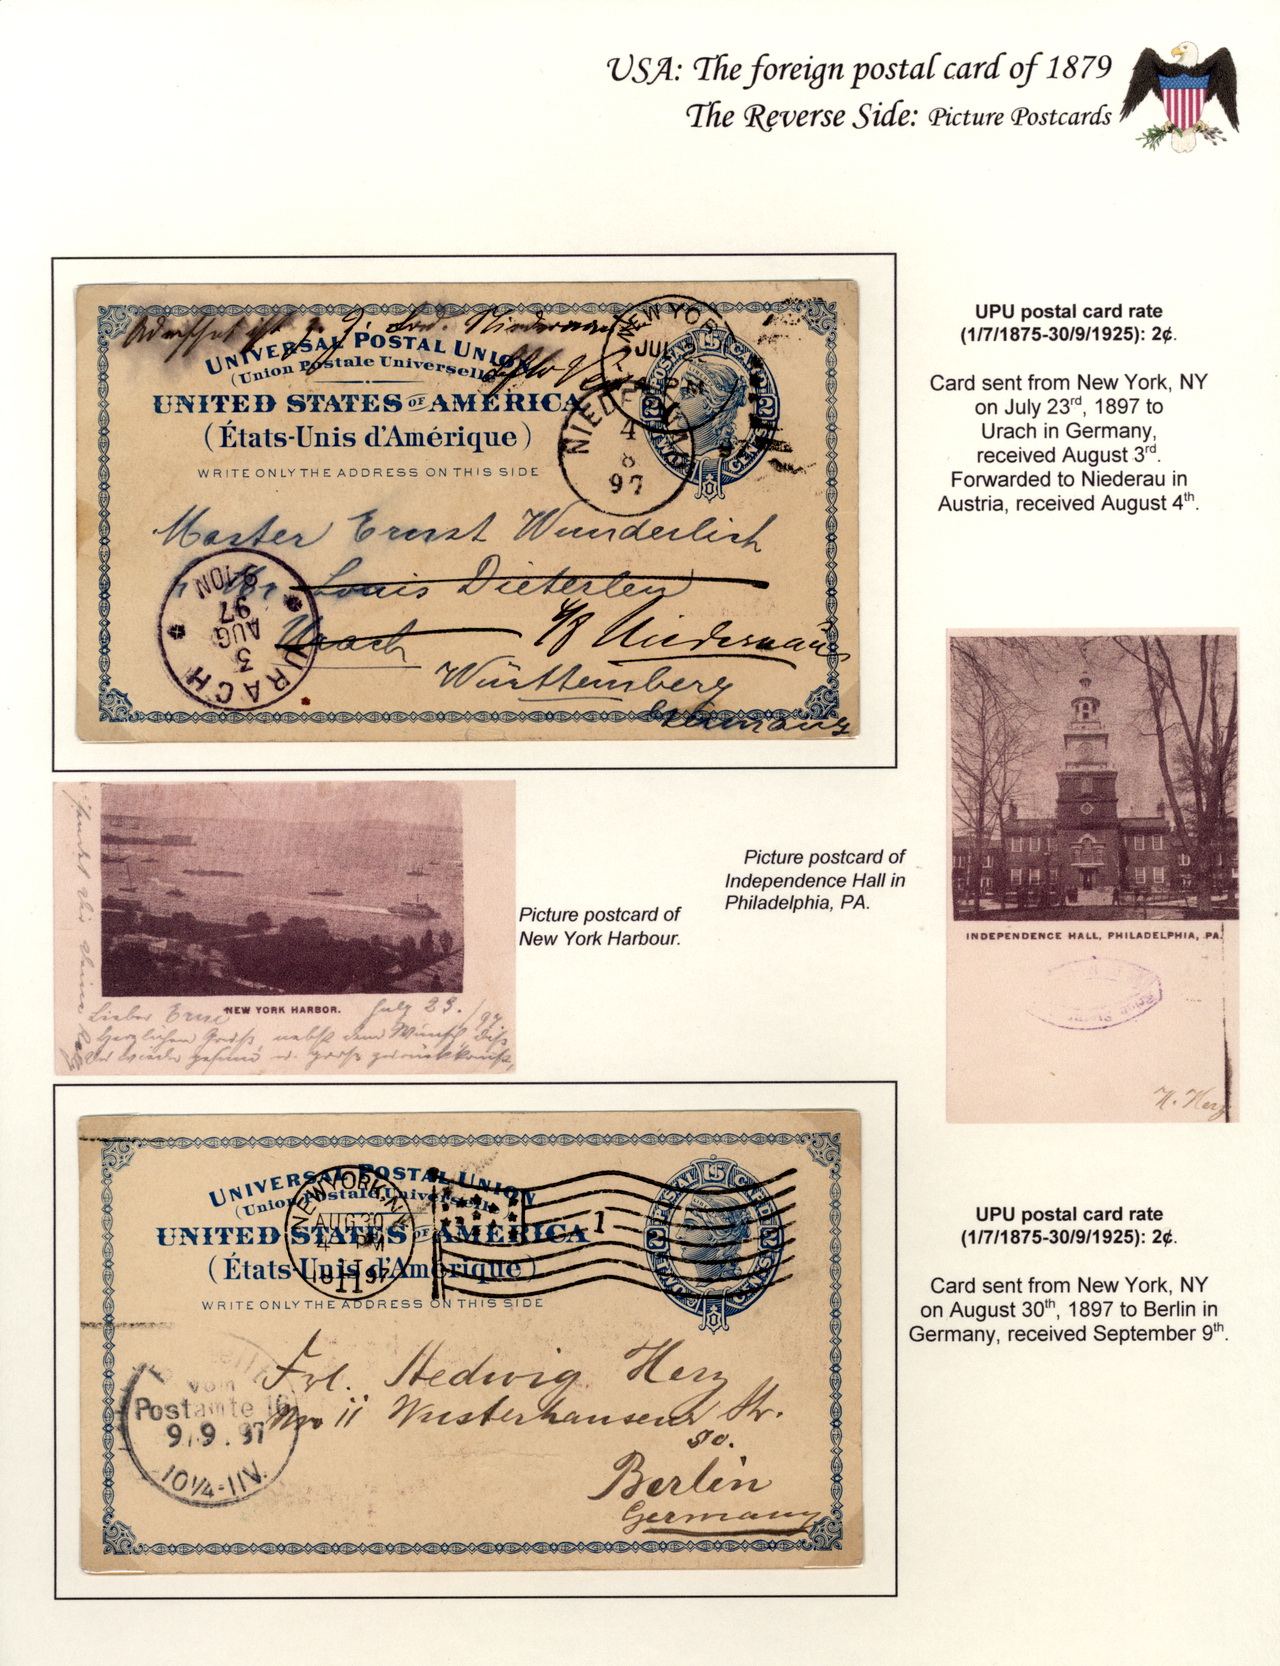 USA: The foreign postal card of 1879
The Reverse Side: Picture Postcards
UPU postal card rate
(1/7/1875-30/9/1925): 2¢.
Card sent from New York, NY
on July 23rd, 1897 to
Urach in Germany,
received August 3rd.
Forwarded to Niederau in
Austria, received August 4th.
UNIVERSAL POSTAL UNION
(Union Postale Universelle)
UNITED STATES OF AMERICA
(États-Unis d'Amérique)
WRITE ONLY THE ADDRESS ON THIS SIDE
POSTAL CARD
U.S.
2 2
TWO CENTS
NEW YORK
JUL
PM
4
8
97
Master Ernst Wunderlich
Louis Dieterlen
Urach
Württemberg
Germany
URACH
3
AUG
97
NEW YORK HARBOR.
July 23./97
Lieber
Picture postcard of
New York Harbour.
Picture postcard of
Independence Hall in
Philadelphia, PA.
INDEPENDENCE HALL, PHILADELPHIA, PA.
H. Herz
UNIVERSAL POSTAL UNION
(Union Postale Universelle)
UNITED STATES OF AMERICA
(États-Unis d'Amérique)
WRITE ONLY THE ADDRESS ON THIS SIDE
NEW YORK, N.Y.
AUG 30
4 PM
97
1
POSTAL CARD
U.S.
2 2
TWO CENTS
Frl. Hedwig Herz
Wusterhausener Str.
So.
Berlin
Germany
vom
Postamte 16
9.9.97
10¼-11V.
UPU postal card rate
(1/7/1875-30/9/1925): 2¢.
Card sent from New York, NY
on August 30th, 1897 to Berlin in
Germany, received September 9th.